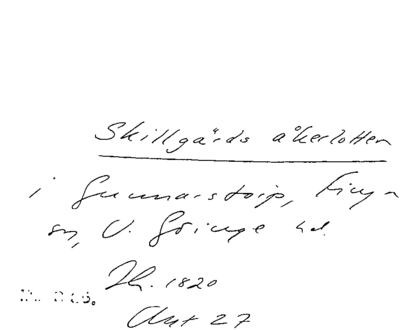 Skillgårds åkerlotten
i Gunnarstorp, Finja
sn, V. Göinge hd.
Th. 1820
Akt 27